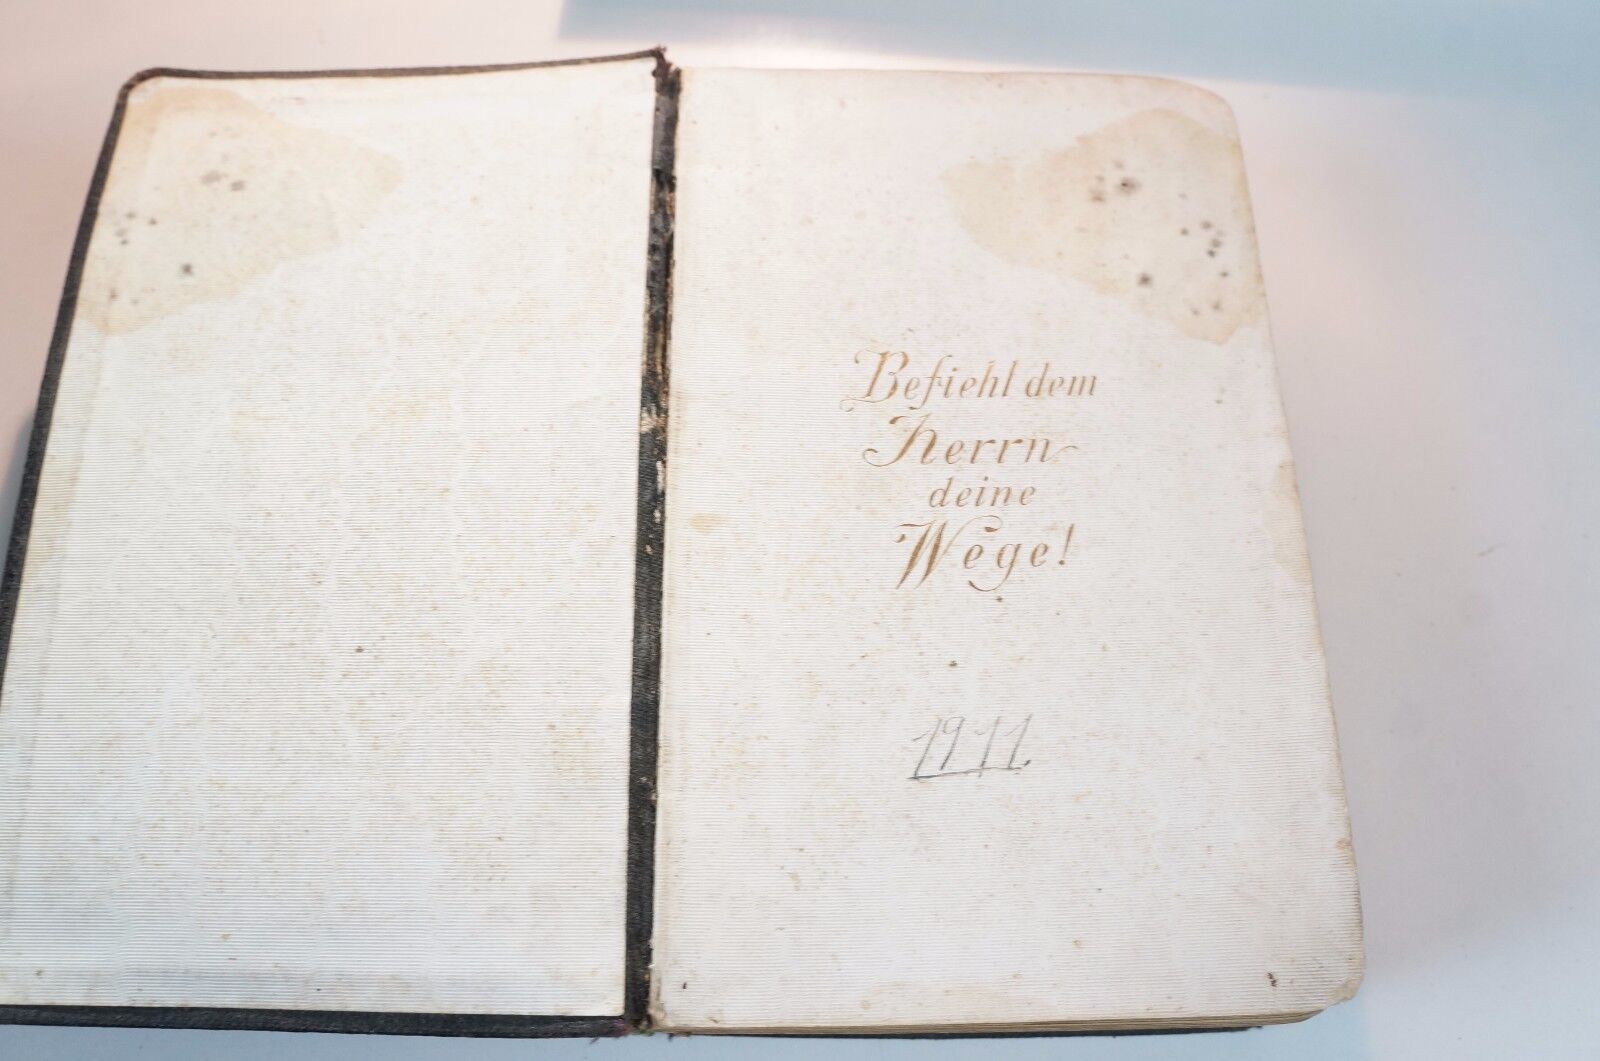 Befiehl dem
Herrn
deine
Wege!
1911